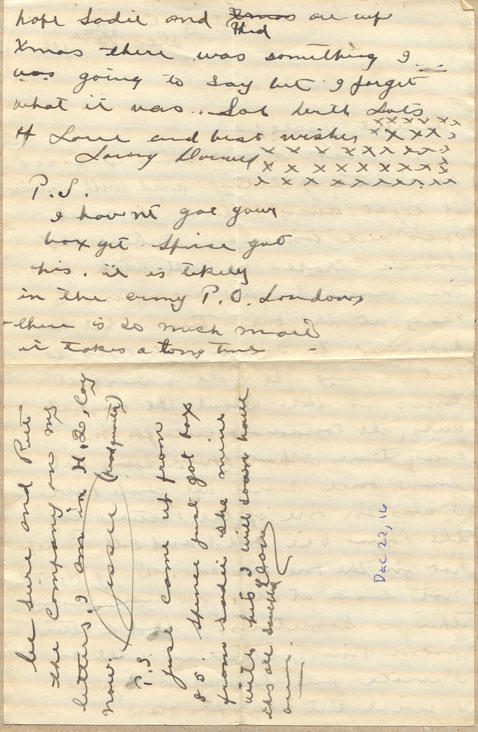 hope Sadie and Thed are up
Xmas there was something I
was going to say but I forget
what it was. Lots
of Love and best wishes x x x x x x
P.S
I hav'nt got your
box yet. Spirse got
his. it is likely
in the army P.O. London
there is so much mail
it takes a long time
be sure and Put
the Company on my
letters. I am in H, 2, Coy
now. Jessie (headquarters)
P.S.
just came up from
85. Spirse just got box
from Sadie she mine
with his I will soon have
own.
Dec 22, 16